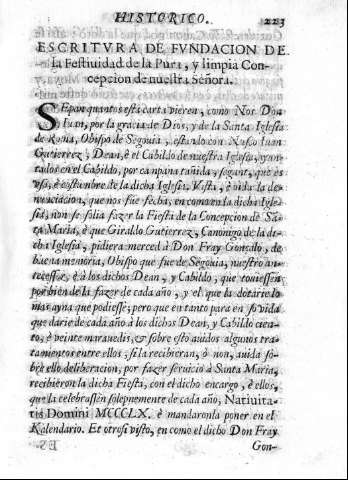 HISTORICO. 223
ESCRITVRA DE FVNDACION DE
la Festiuidad de la Pura, y limpia Con-
cepcion de nuestra Señora.
SEpan quantos esta carta vieren, como Nos Don
Iuan, por la gracia de Dios, y de la Santa Iglesia
de Roma, Obispo de Segouia, estando con Nusco Iuan
Gutierrez, Dean, è el Cabildo de nuestra Iglesia, ayun-
tados en el Cabildo, por campana tañida, segun, que es
vso, è costumbre de la dicha Iglesia, Vista, è oida la de-
nunciacion, que nos fue fecha, en como en la dicha Igle-
sia, non se solia fazer la Fiesta de la Concepcion de Sa-
ta Maria, è que Giraldo Gutierrez, Canonigo de la di-
cha Iglesia, pidiera merced à Don Fray Gonçalo, de
buena memoria, Obispo que fue de Segouia, nuestro an-
tecessor, è à los dichos Dean, y Cabildo, que touiessen
por bien de la fazer de cada año, y el que la dotarie lo
mas ayna que podiesse; pero que en tanto para en so vida
que darie de cada año à los dichos Dean, y Cabildo cien-
to, è veinte marauedis, & sobre esto auidos algunos tra-
tamentos entre ellos, si la recibieran, ò non, auida so-
bre ello deliberacion, por fazer seruicio à Santa Maria,
recibieron la dicha Fiesta, con el dicho encargo, è ellos,
que la celebrassen solepnemente de cada año, Natiuita-
tis Domini MCCCLX. è mandaronla poner en el
Kalendario. Et otrosi visto, en como el dicho Don Fray
Gon-